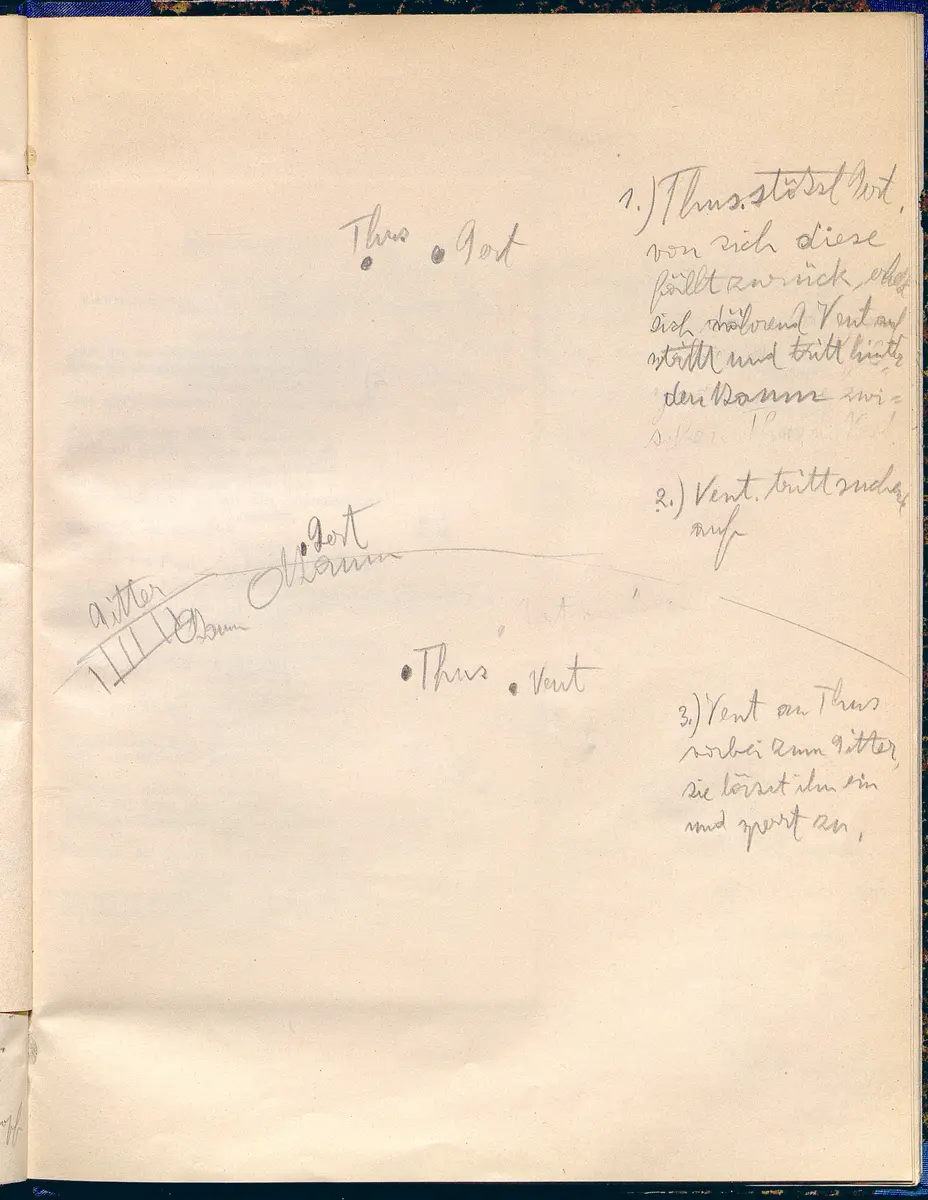 Thus
Gert
1.) Thus. stösst Gert,
von sich diese
fällt zurück, erhebt
sich während Vent auf
tritt und tritt hinter
den Baum zwi=
2.) Vent. tritt suchend
auf
Gert
Baum
Gitter
Baum
Thus
Vent
3.) Vent an Thus
vorbei zum Gitter,
sie lässt ihn ein
und sperrt zu,